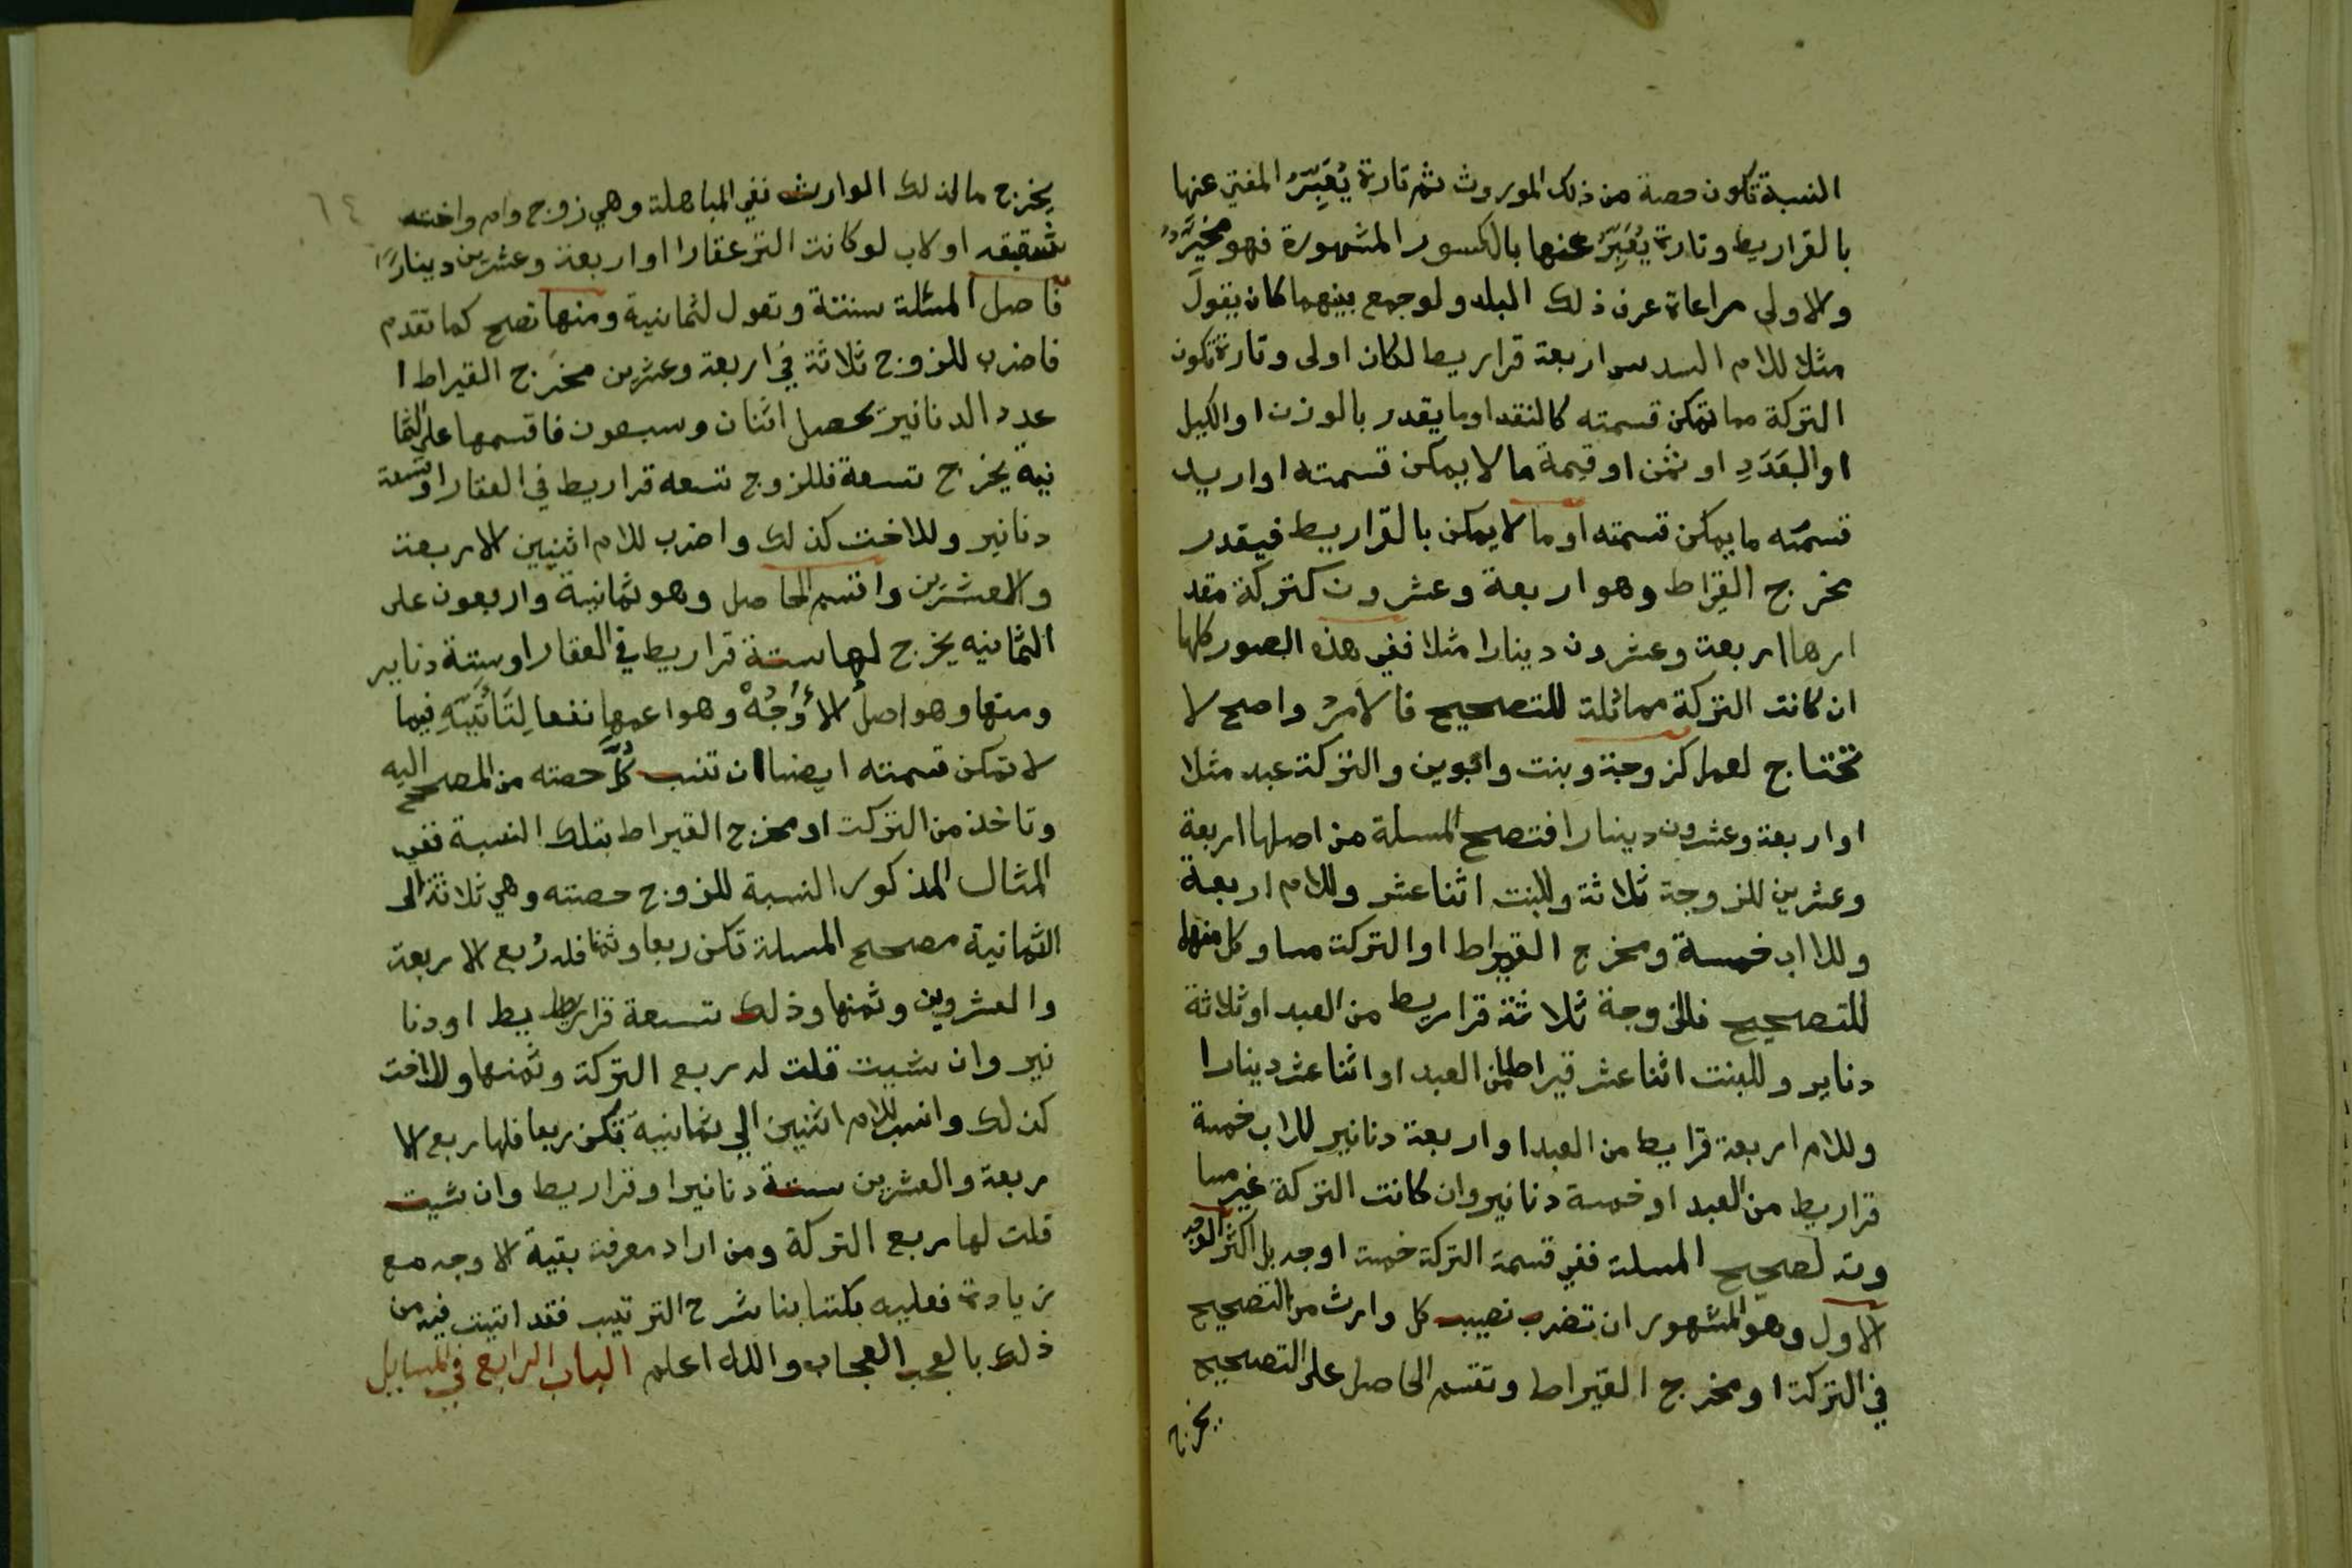 النسبة تكون حصة من ذلك الموروث ثم تارة يُعَبِّرُ المفتي عنها
بالقراريط وتارة يُعَبِّرُ عنها بالكسور المشهورة فهو مخيَّر
والاولى مراعاة عرف ذلك البلد ولو جمع بينهما كان يقول
مثلا للام السدس اربعة قراريط لكان اولى وتارة تكون
التركة مما تمكن قسمته كالنقد او ما يقدر بالوزن او الكيل
او العَدَدِ او ثمن او قيمة ما لا يمكن قسمته او اريد
قسمته ما يمكن قسمته او ما لا يمكن بالقراريط فيقدر
مخرج القيراط وهو اربعة وعشرون كتركة مقد
ارها اربعة وعشرون دينارا مثلا ففي هذه الصور كلها
ان كانت التركة مماثلة للتصحيح فالامرُ واضح لا
تحتاج لعمل كزوجة وبنت وابوين والتركة عبد مثلا
او اربعة وعشرون دينارا فتصح المسلة من اصلها اربعة
وعشرين للزوجة ثلاثة وللبنت اثنا عشر وللام اربعة
وللاب خمسة ومخرج القيراط او التركة مساو كل منهما
للتصحيح فللزوجة ثلاثة قراريط من العبد او ثلاثة
دنانير وللبنت اثنا عشر قيراطا من العبد او اثنا عشر دينارا
وللام اربعة قراريط من العبد او اربعة دنانير للاب خمسة
قراريط من العبد او خمسة دنانير وان كانت التركة غير مسا
وية لصحيح المسلة ففي قسمة التركة خمسة اوجه بل اكثر
الاول وهو المشهور ان تضرب نصيب كل وارث من التصحيح
في التركة او مخرج القيراط وتقسم الحاصل على التصحيح
يخرج
٦٤
يخرج ما لذلك الوارث ففي المباهلة وهي زوج وام واخت
شقيقه او لاب لو كانت التركة عقارا او اربعة وعشرين دينارًا
فاصل المسئلة ستة وتعول لثمانية ومنها تصح كما تقدم
فاضرب للزوج ثلاثة في اربعة وعشرين مخرج القيراط ا
عدد الدنانير يحصل اثنان وسبعون فاقسمها على الثما
نية يخرج تسعة فللزوج تسعه قراريط في العقار او تسعة
دنانير وللاخت كذلك واضرب للام اثنين الاربعة
والعشرين واقسم الحاصل وهو ثمانية واربعون على
الثمانيه يخرج لها ستة قراريط في العقار او ستة دنانير
ومنها وهو اصل الاَوْجُهْ وهو اعمها نفعا لِتَأَتِّيهِ فيما
لا تمكن قسمته ايضا ان تنسب كُلَّ حصته من المصحح اليه
وتاخذ من التركة او مخرج القيراط بتلك النسبة ففي
المثال المذكور النسبة للزوج حصته وهي ثلاثة الى
الثمانية مصحح المسلة تكن ربعا وثمنا فله رُبع الاربعة
والعشروين وثمنها وذلك تسعة قراريط او دنا
نير وان شيت قلت له ربع التركة وثمنها وللاخت
كذلك وانسب للام اثنين الي ثمانية تكن ربعا فلها ربع الا
ربعة والعشرين ستة دنانير او قراريط وان شيت
قلت لها ربع التركة ومن اراد معرفة بقية الاوجه مع
زيادة فعليه بكتابنا شرح الترتيب فقد اتيت فيه من
ذلك بالعجب العجاب والله اعلم الباب الرابع في المسايل